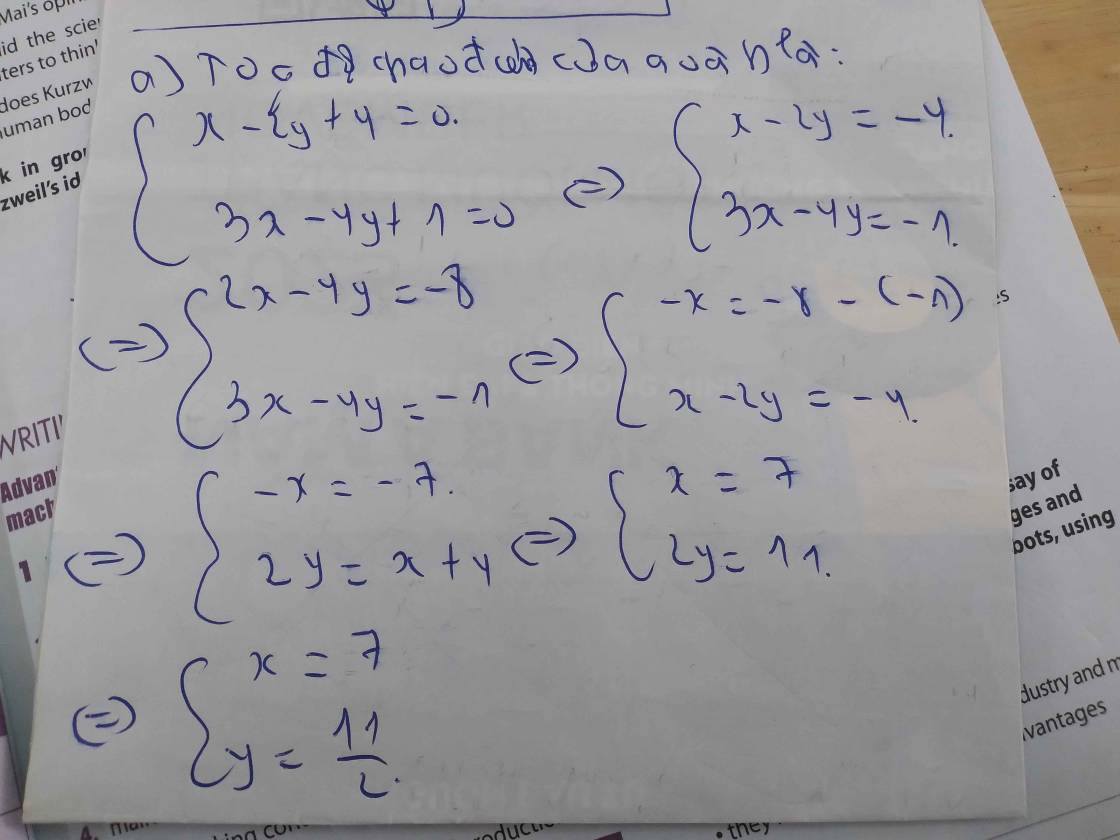 Mai's opin
id the scie
ters to think
does Kurzw
human bod
k in grou
zweil's id
a) Toạ độ giao điểm của a và b là:
{ x - 2y + 4 = 0.
3x - 4y + 1 = 0
<=> { x - 2y = -4.
3x - 4y = -1.
<=> { 2x - 4y = -8
3x - 4y = -1
<=> { -x = -8 - (-1)
x - 2y = -4.
<=> { -x = -7.
2y = x + 4
<=> { x = 7
2y = 11.
<=> { x = 7
y = 11/2.
WRITI
Advan
mach
1
es
say of
ges and
bots, using
dustry and m
vantages
• they